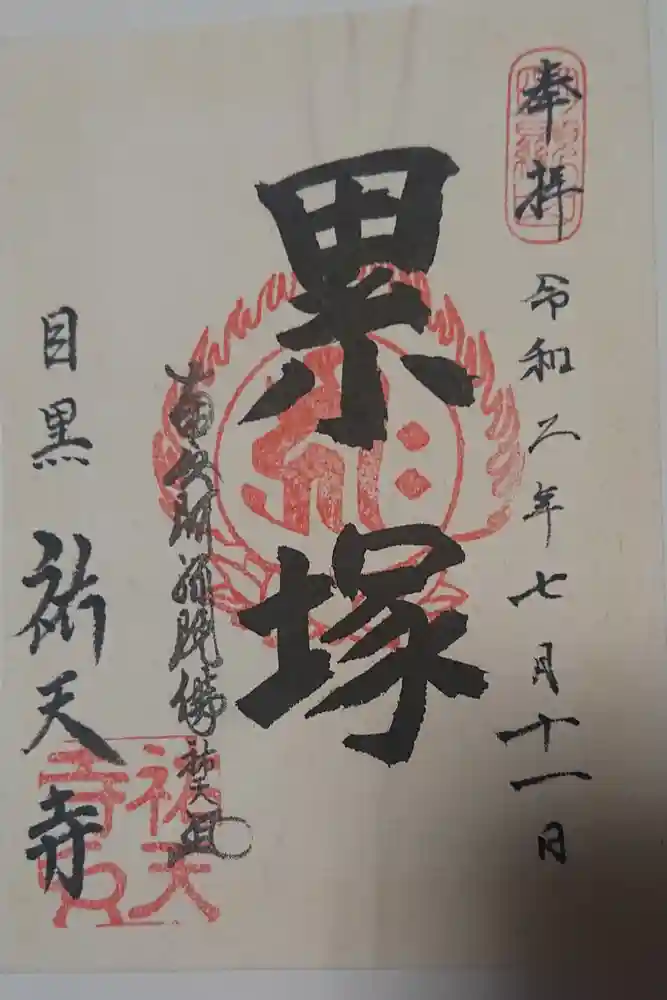 奉拝
令和二年七月十一日
累塚
南無阿弥陀佛 祐天
目黒 祐天寺
祐天寺